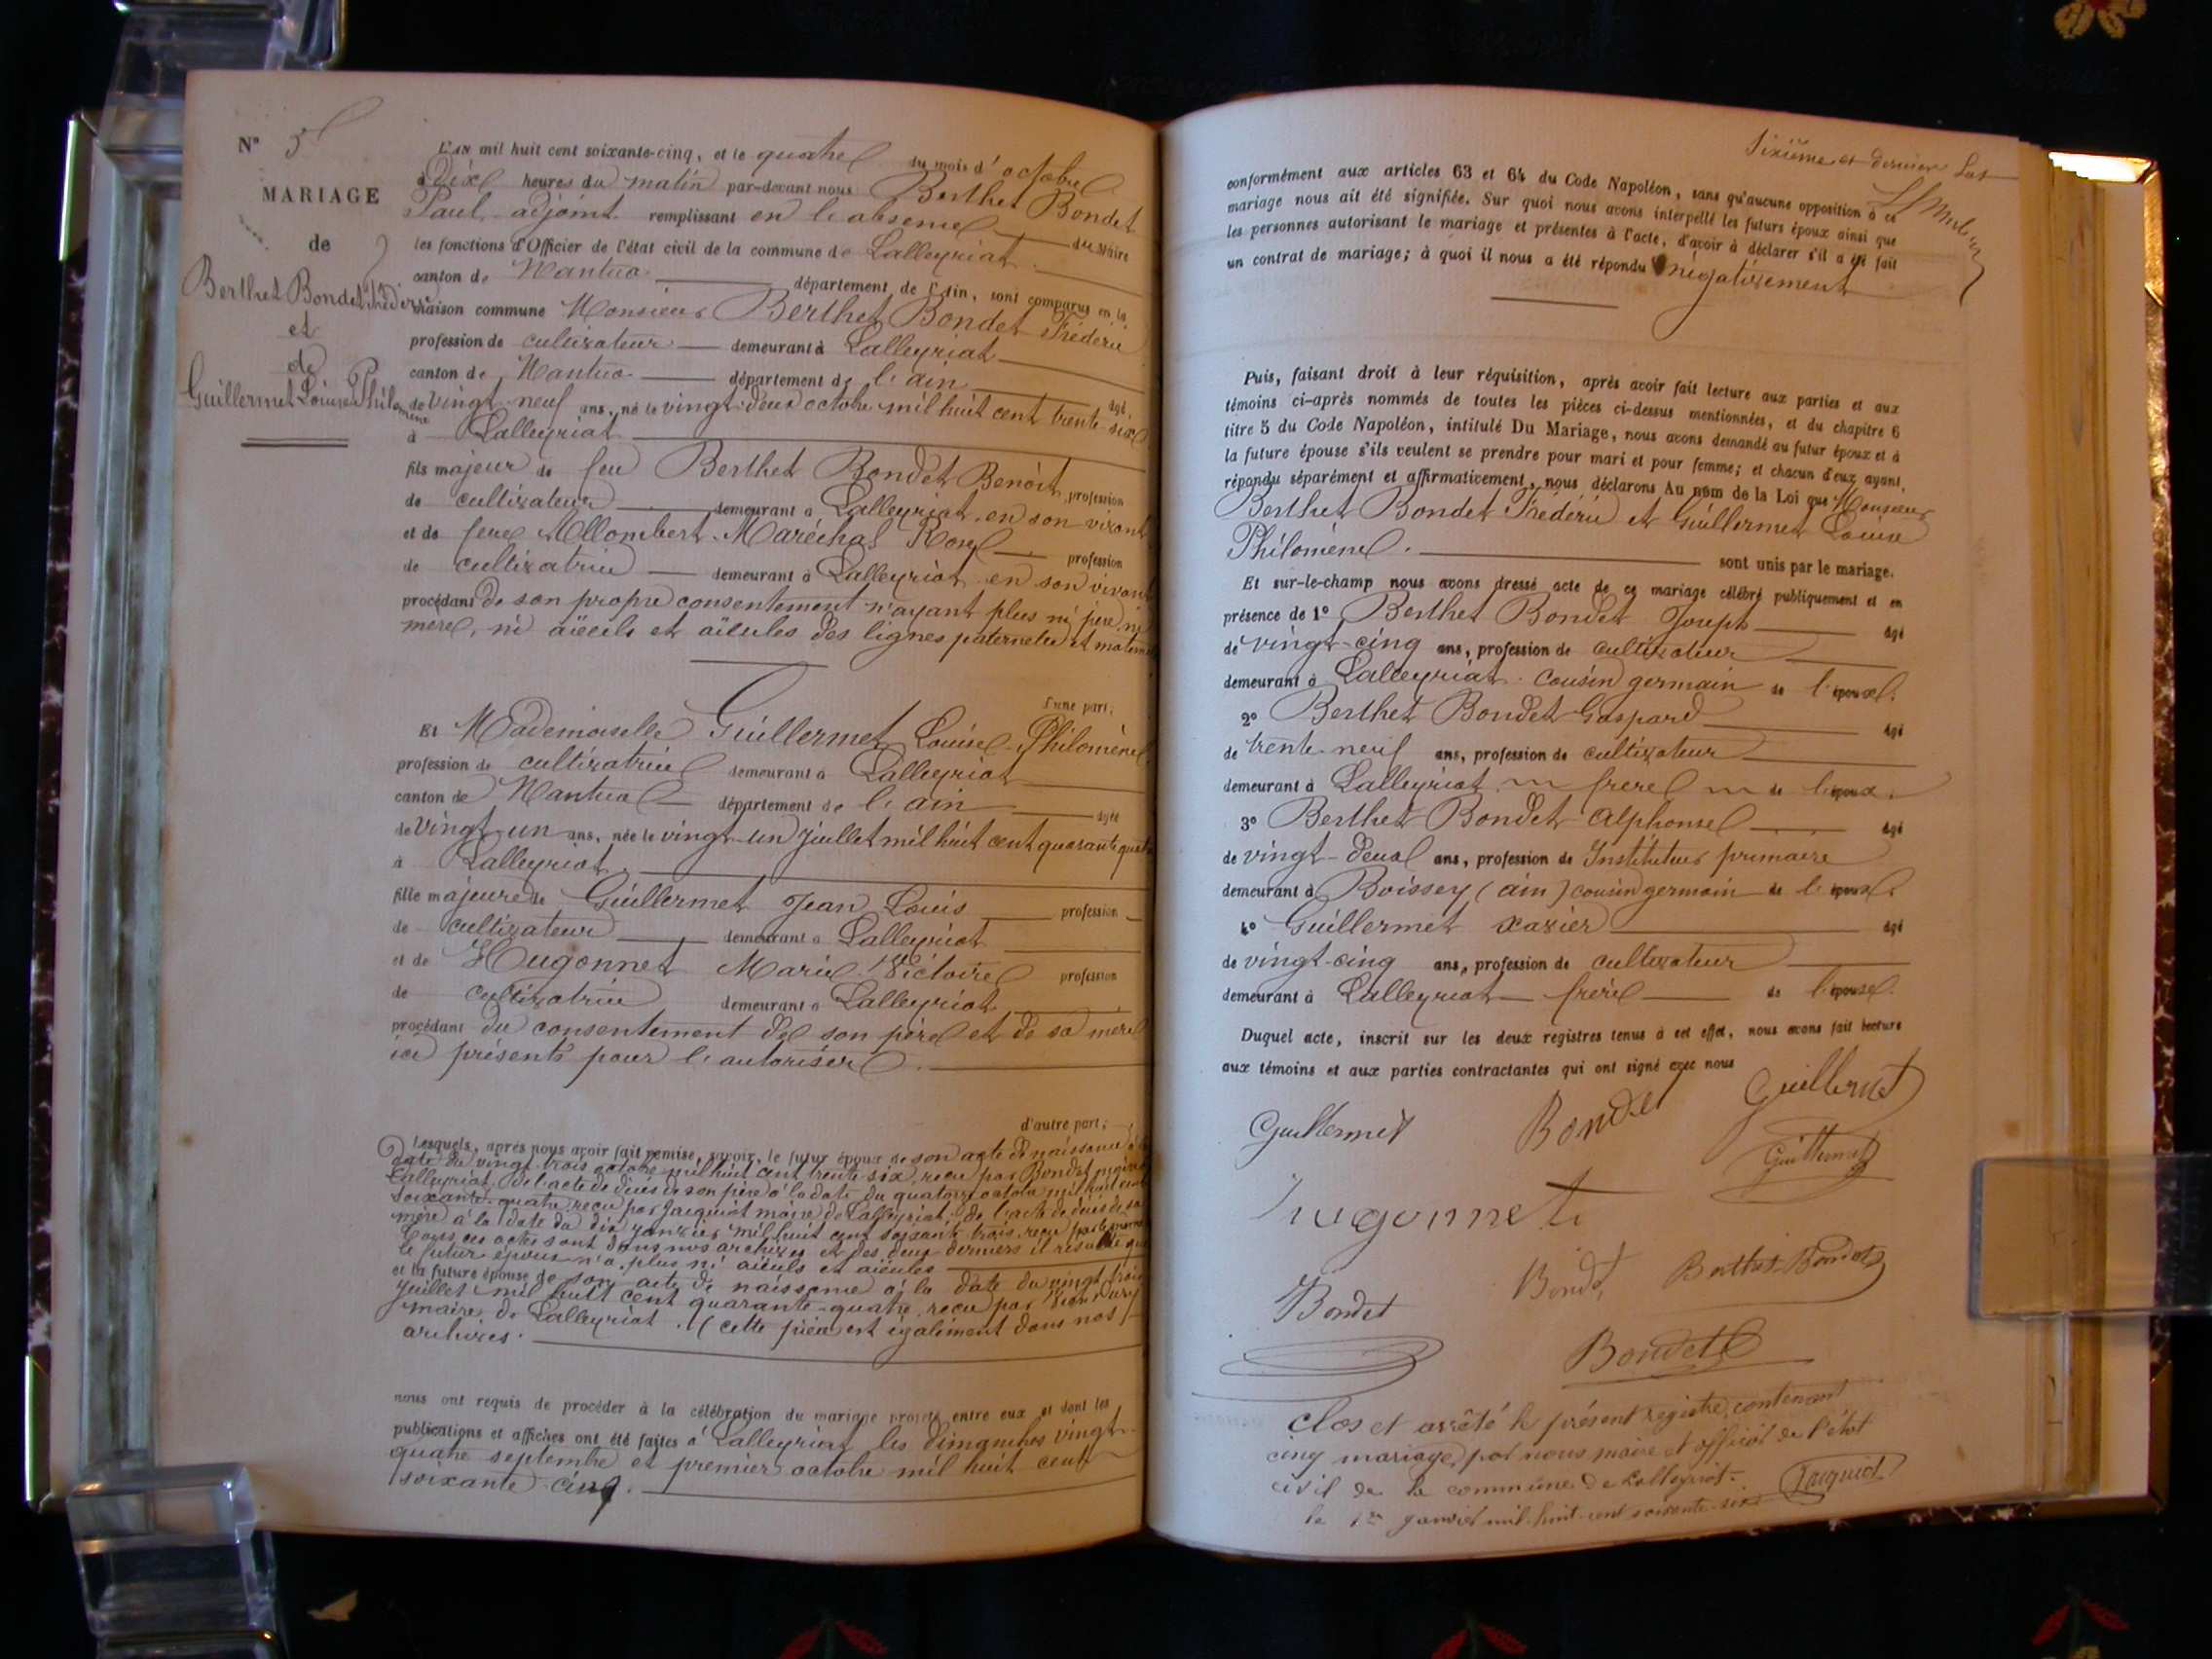 N° 5
MARIAGE
de
Berthet Bondet Frédéric
et
de
Guillermet Louise Philomène
L'AN mil huit cent soixante-cinq, et le quatre du mois d'octobre
à dix heures du matin par-devant nous Berthet Bondet
Paul adjoint remplissant en l'absence du Maire
les fonctions d'Officier de l'état civil de la commune de Lalleyriat
canton de Nantua département de l'Ain, sont comparus en la
maison commune Monsieur Berthet Bondet Frédéric
profession de cultivateur demeurant à Lalleyriat
canton de Nantua département de l'ain âgé,
de vingt-neuf ans, né le vingt-deux octobre mil huit cent trente-six
à Lalleyriat
fils majeur de feu Berthet Bondet Benoît, profession
de cultivateur demeurant à Lalleyriat, en son vivant
et de feue Allombert-Maréchal Rose profession
de cultivatrice demeurant à Lalleyriat en son vivant
procédant de son propre consentement n'ayant plus ni père, ni
mère, ni aïeuls et aïeules des lignes paternelle et maternelle
d'une part;
Et Mademoiselle Guillermet Louise Philomène
profession de cultivatrice demeurant à Lalleyriat
canton de Nantua département de l'ain âgée
de vingt-un ans, née le vingt-un Juillet mil huit cent quarante quatre
à Lalleyriat.
fille majeure de Guillermet Jean Louis profession
de cultivateur demeurant à Lalleyriat
et de Hugonnet Marie Victoire profession
de cultivatrice demeurant à Lalleyriat
procédant du consentement de son père et de sa mère
ici présents pour l'autoriser.
d'autre part;
Lesquels, après nous avoir fait remise, savoir, le futur époux de son acte de naissance à la
date du vingt trois octobre mil huit cent trente-six, reçu par Bondet maire
Lalleyriat, de l'acte de décès de son père à la date du quatorze octobre mil huit cent
soixante-quatre reçu par Jacquiot maire de Lalleyriat; de l'acte de décès de sa
mère à la date du dix janvier mil huit cent soixante trois, reçu par le même
Tous ces actes sont dans nos archives et des deux derniers il résulte que
le futur époux n'a plus ni aïeuls et aïeules
et la future épouse de son acte de naissance à la date du vingt trois
Juillet mil huit cent quarante-quatre reçu par
maire de Lalleyriat. (cette pièce est également dans nos
archives.
nous ont requis de procéder à la célébration du mariage projeté entre eux et dont les
publications et affiches ont été faites à Lalleyriat les dimanches vingt
quatre septembre et premier octobre mil huit cent
soixante-cinq.
Sixième et dernier
conformément aux articles 63 et 64 du Code Napoléon, sans qu'aucune opposition à ce
mariage nous ait été signifiée. Sur quoi nous avons interpellé les futurs époux ainsi que
les personnes autorisant le mariage et présentes à l'acte, d'avoir à déclarer s'il a été fait
un contrat de mariage; à quoi il nous a été répondu négativement
Puis, faisant droit à leur réquisition, après avoir fait lecture aux parties et aux
témoins ci-après nommés de toutes les pièces ci-dessus mentionnées, et du chapitre 6
titre 5 du Code Napoléon, intitulé Du Mariage, nous avons demandé au futur époux et à
la future épouse s'ils veulent se prendre pour mari et pour femme; et chacun d'eux ayant,
répondu séparément et affirmativement, nous déclarons Au nom de la Loi que Monsieur
Berthet Bondet Frédéric et Guillermet Louise
Philomène. sont unis par le mariage.
Et sur-le-champ nous avons dressé acte de ce mariage célébré publiquement et en
présence de 1° Berthet Bondet Joseph âgé
de vingt-cinq ans, profession de cultivateur
demeurant à Lalleyriat cousin germain de l'époux.
2° Berthet Bondet Gaspard âgé
de trente-neuf ans, profession de cultivateur
demeurant à Lalleyriat frère de l'époux.
3° Berthet Bondet Alphonse âgé
de vingt-deux ans, profession de Instituteur primaire
demeurant à Boissey (ain) cousin germain de l'époux.
4° Guillermet xavier âgé
de vingt-cinq ans, profession de cultivateur
demeurant à Lalleyriat frère de l'épouse.
Duquel acte, inscrit sur les deux registres tenus à cet effet, nous avons fait lecture
aux témoins et aux parties contractantes qui ont signé avec nous
Guillermet Bondet Guillermet
Guillermet
hugonnet
Bondet Bondet Berthet-Bondet
Bondet
Clos et arrêté le présent registre, contenant
cinq mariage, par nous maire et officier de l'état
civil de la commune de Lalleyriat.
le 1er janvier mil-huit-cent soixante-six Jacquiot